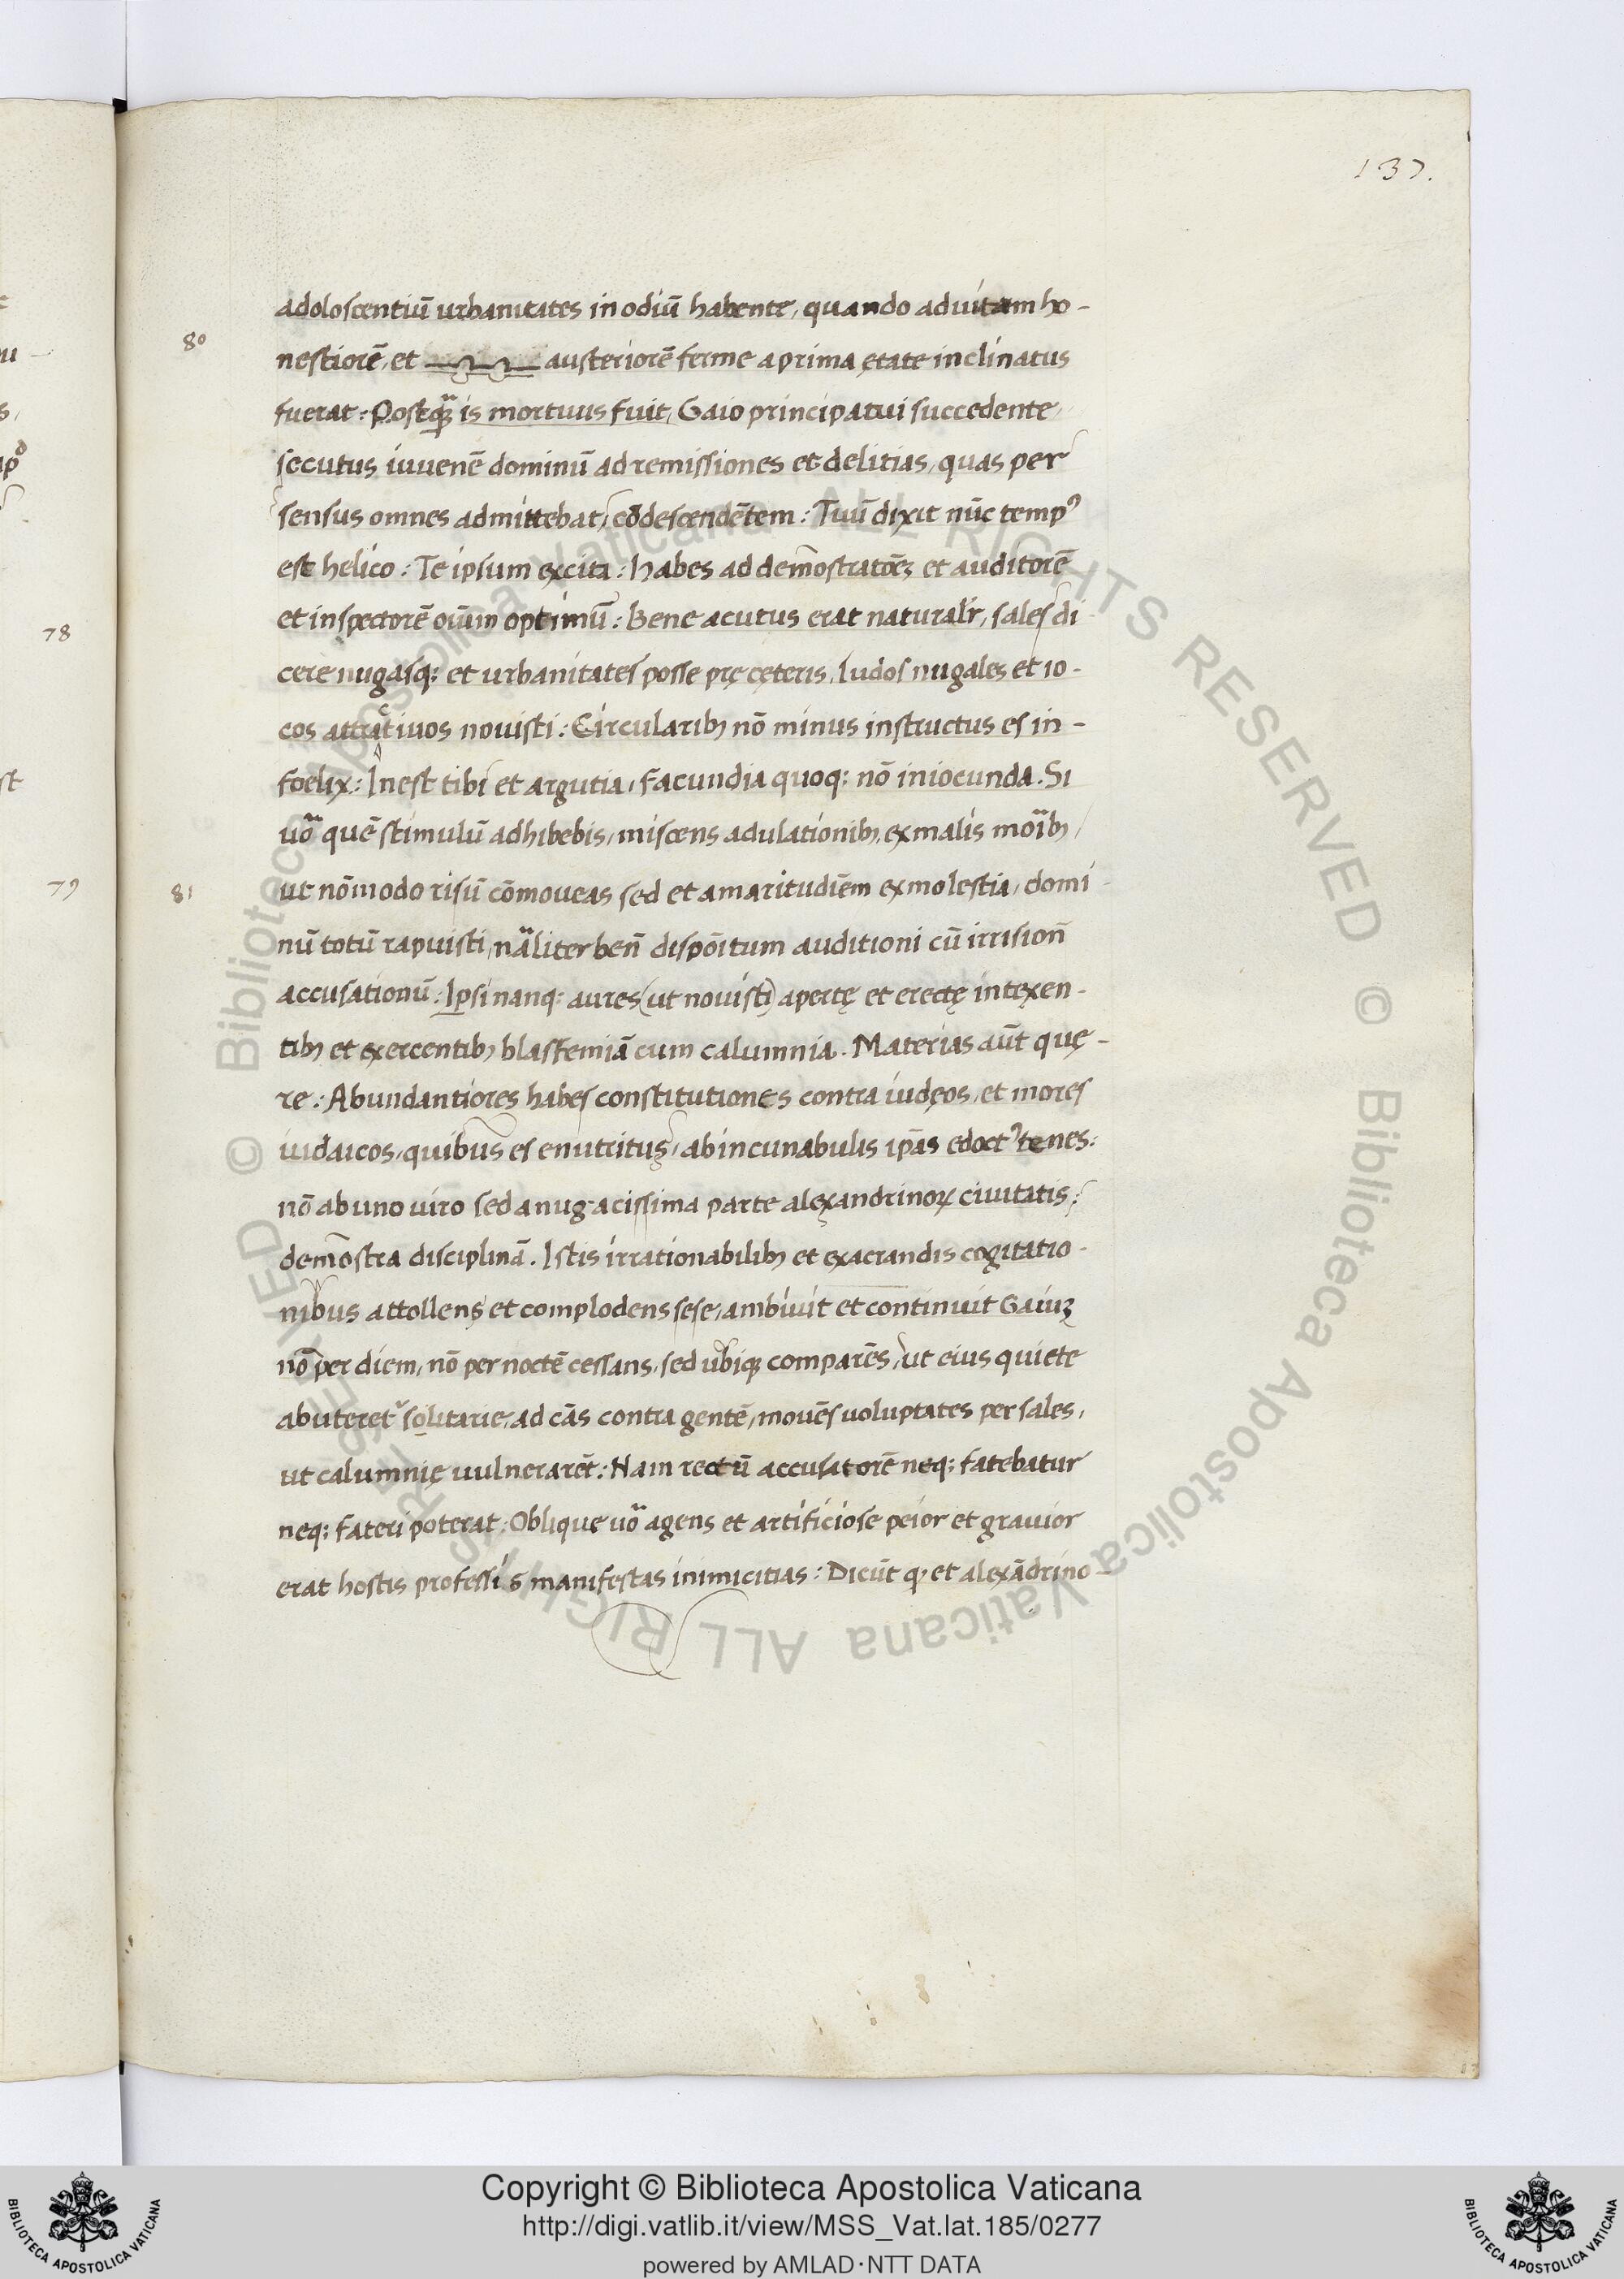 137.
adoloscentiũ urbanitates in odiũ habente, quando ad vitam ho-
80
nestiorẽ, et austeriorẽ ferme a prima ętate inclinatus
fuerat: Postq̃ is mortuus fuit, Gaio principatui succedente
secutus iuvenẽ dominũ ad remissiones et delitias, quas per
sensus omnes admittebat, cõdescendẽtem: Tuũ dixit nũc temp⁹
est helico: Te ipsum excita: habes ad demõstratões et auditorẽ
et inspectorẽ oĩum optimũ: Bene acutus erat naturalr̃, sales di
78
cere nugasq; et urbanitates posse prę cęteris, ludos nugales et io-
cos attractivos novisti: Circularibꝫ nõ minus instructus es in-
foelix: Inest tibi et argutia, facundia quoq; nõ iniocunda. Si
uõ quẽ stimulũ adhibebis, miscens adulationibꝫ, ex malis moĩbꝫ,
79
81
ut nõ modo risũ cõmoveas sed et amaritudĩem ex molestia, domi-
nũ totũ rapuisti, nãliter beñ dispõitum auditioni cũ irrisioñ
accusationũ: Ipsi nanq; aures (ut novisti) apertę et erectę intexen-
tibꝫ et exercentibꝫ blasfemiã cum calumnia. Materias aũt quę-
re: Abundantiores habes constitutiones contra iudęos, et mores
iudaicos, quibus es enutritus, ab incunabulis ip̃as edoct⁹ tenes:
nõ ab uno viro sed a nugacissima parte alexandrinoꝝ civitatis:
demõstra disciplinã. Istis irrationabilibꝫ et exacrandis cogitatio-
nibus attollens et complodens sese, ambivit et continuit Gaiuꝫ
nõ per diem, nõ per noctẽ cessans, sed ubiq; comparẽs, ut eius quiete
abuteret᷑ solitarie, ad cãs contra gentẽ, movẽs voluptates per sales,
ut calumnię vulnerarẽt: Nam rectũ accusatorẽ neq; fatebatur
neq; fateri poterat: Oblique uõ agens et artificiose peior et gravior
erat hostis professis manifestas inimicitias: Dicũt q, et alexãdrino
Copyright © Biblioteca Apostolica Vaticana
http://digi.vatlib.it/view/MSS_Vat.lat.185/0277
powered by AMLAD·NTT DATA
BIBLIOTECA APOSTOLICA VATICANA
BIBLIOTECA APOSTOLICA VATICANA
© Biblioteca Apostolica Vaticana ALL RIGHTS RESERVED © Biblioteca Apostolica Vaticana ALL RIGHTS RESERVED